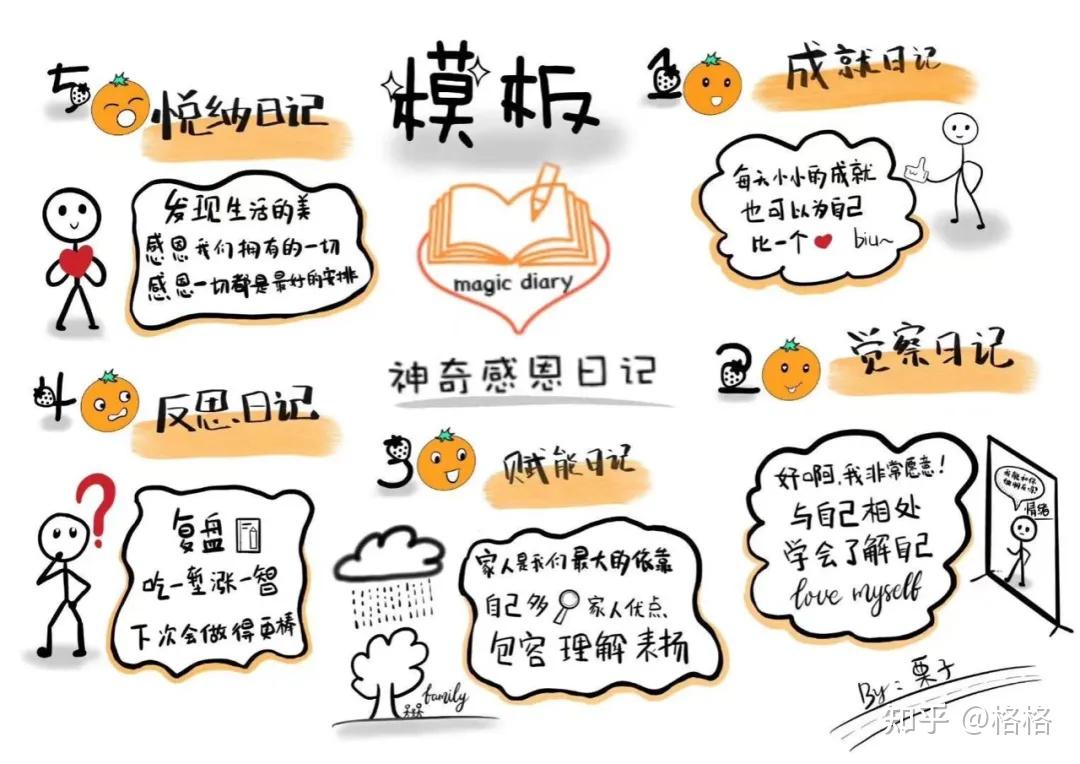 模板
magic diary
神奇感恩日记
1 成就日记
每天小小的成就
也可以为自己
比一个 biu~
2 觉察日记
好啊,我非常愿意!
与自己相处
学会了解自己
love myself
我能和你
做朋友吗?
情绪
3 赋能日记
家人是我们最大的依靠
自己多 家人优点
包容 理解 表扬
family
4 反思日记
复盘
吃一堑涨一智
下次会做得更棒
5 悦纳日记
发现生活的美
感恩我们拥有的一切
感恩一切都是最好的安排
By:栗子
知乎 @格格